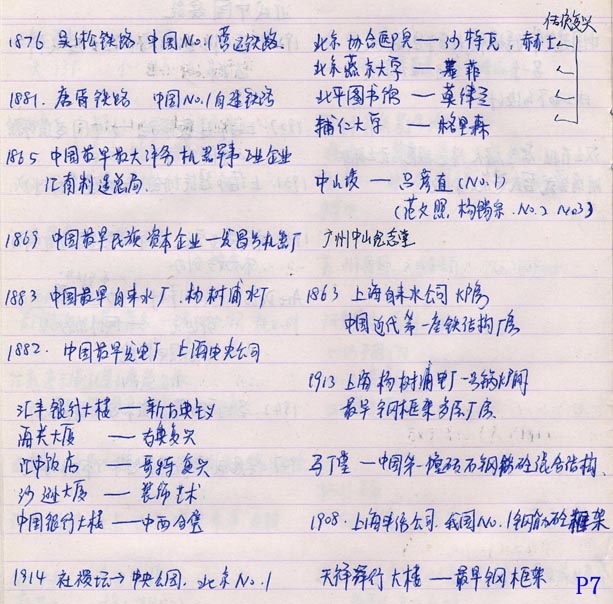 1876 吴淞铁路 中国No.1营运铁路
1881. 唐胥铁路 中国No.1自建铁路
1865 中国最早最大洋务机器军工业企业
江南制造总局.
1869 中国最早民族资本企业—发昌号机器厂
1883 中国最早自来水厂. 杨树浦水厂
1882. 中国最早发电厂 上海电光公司
汇丰银行大楼——新古典主义
海关大厦 ——古典复兴
汇中饭店 ——哥特复兴
沙逊大厦 ——装饰艺术
中国银行大楼——中西合璧
1914 社稷坛→中央公园. 北京No.1
传统复兴
北京协合医院——沙特瓦, 赫士
北京燕京大学——墨菲
北平图书馆——莫律兰
辅仁大学——格里森
中山陵——吕彦直(No.1)
(范文照. 杨锡宗. No.2 No3)
广州中山纪念堂
1863 上海自来水公司 炉房
中国近代第一座铁结构厂房
1913 上海杨树浦电厂一号锅炉间
最早钢框架多层厂房.
马丁堂—中国第一幢砖石钢筋砼混合结构.
1908. 上海电话公司. 我国No.1钢筋砼框架
天祥洋行大楼——最早钢框架
P7